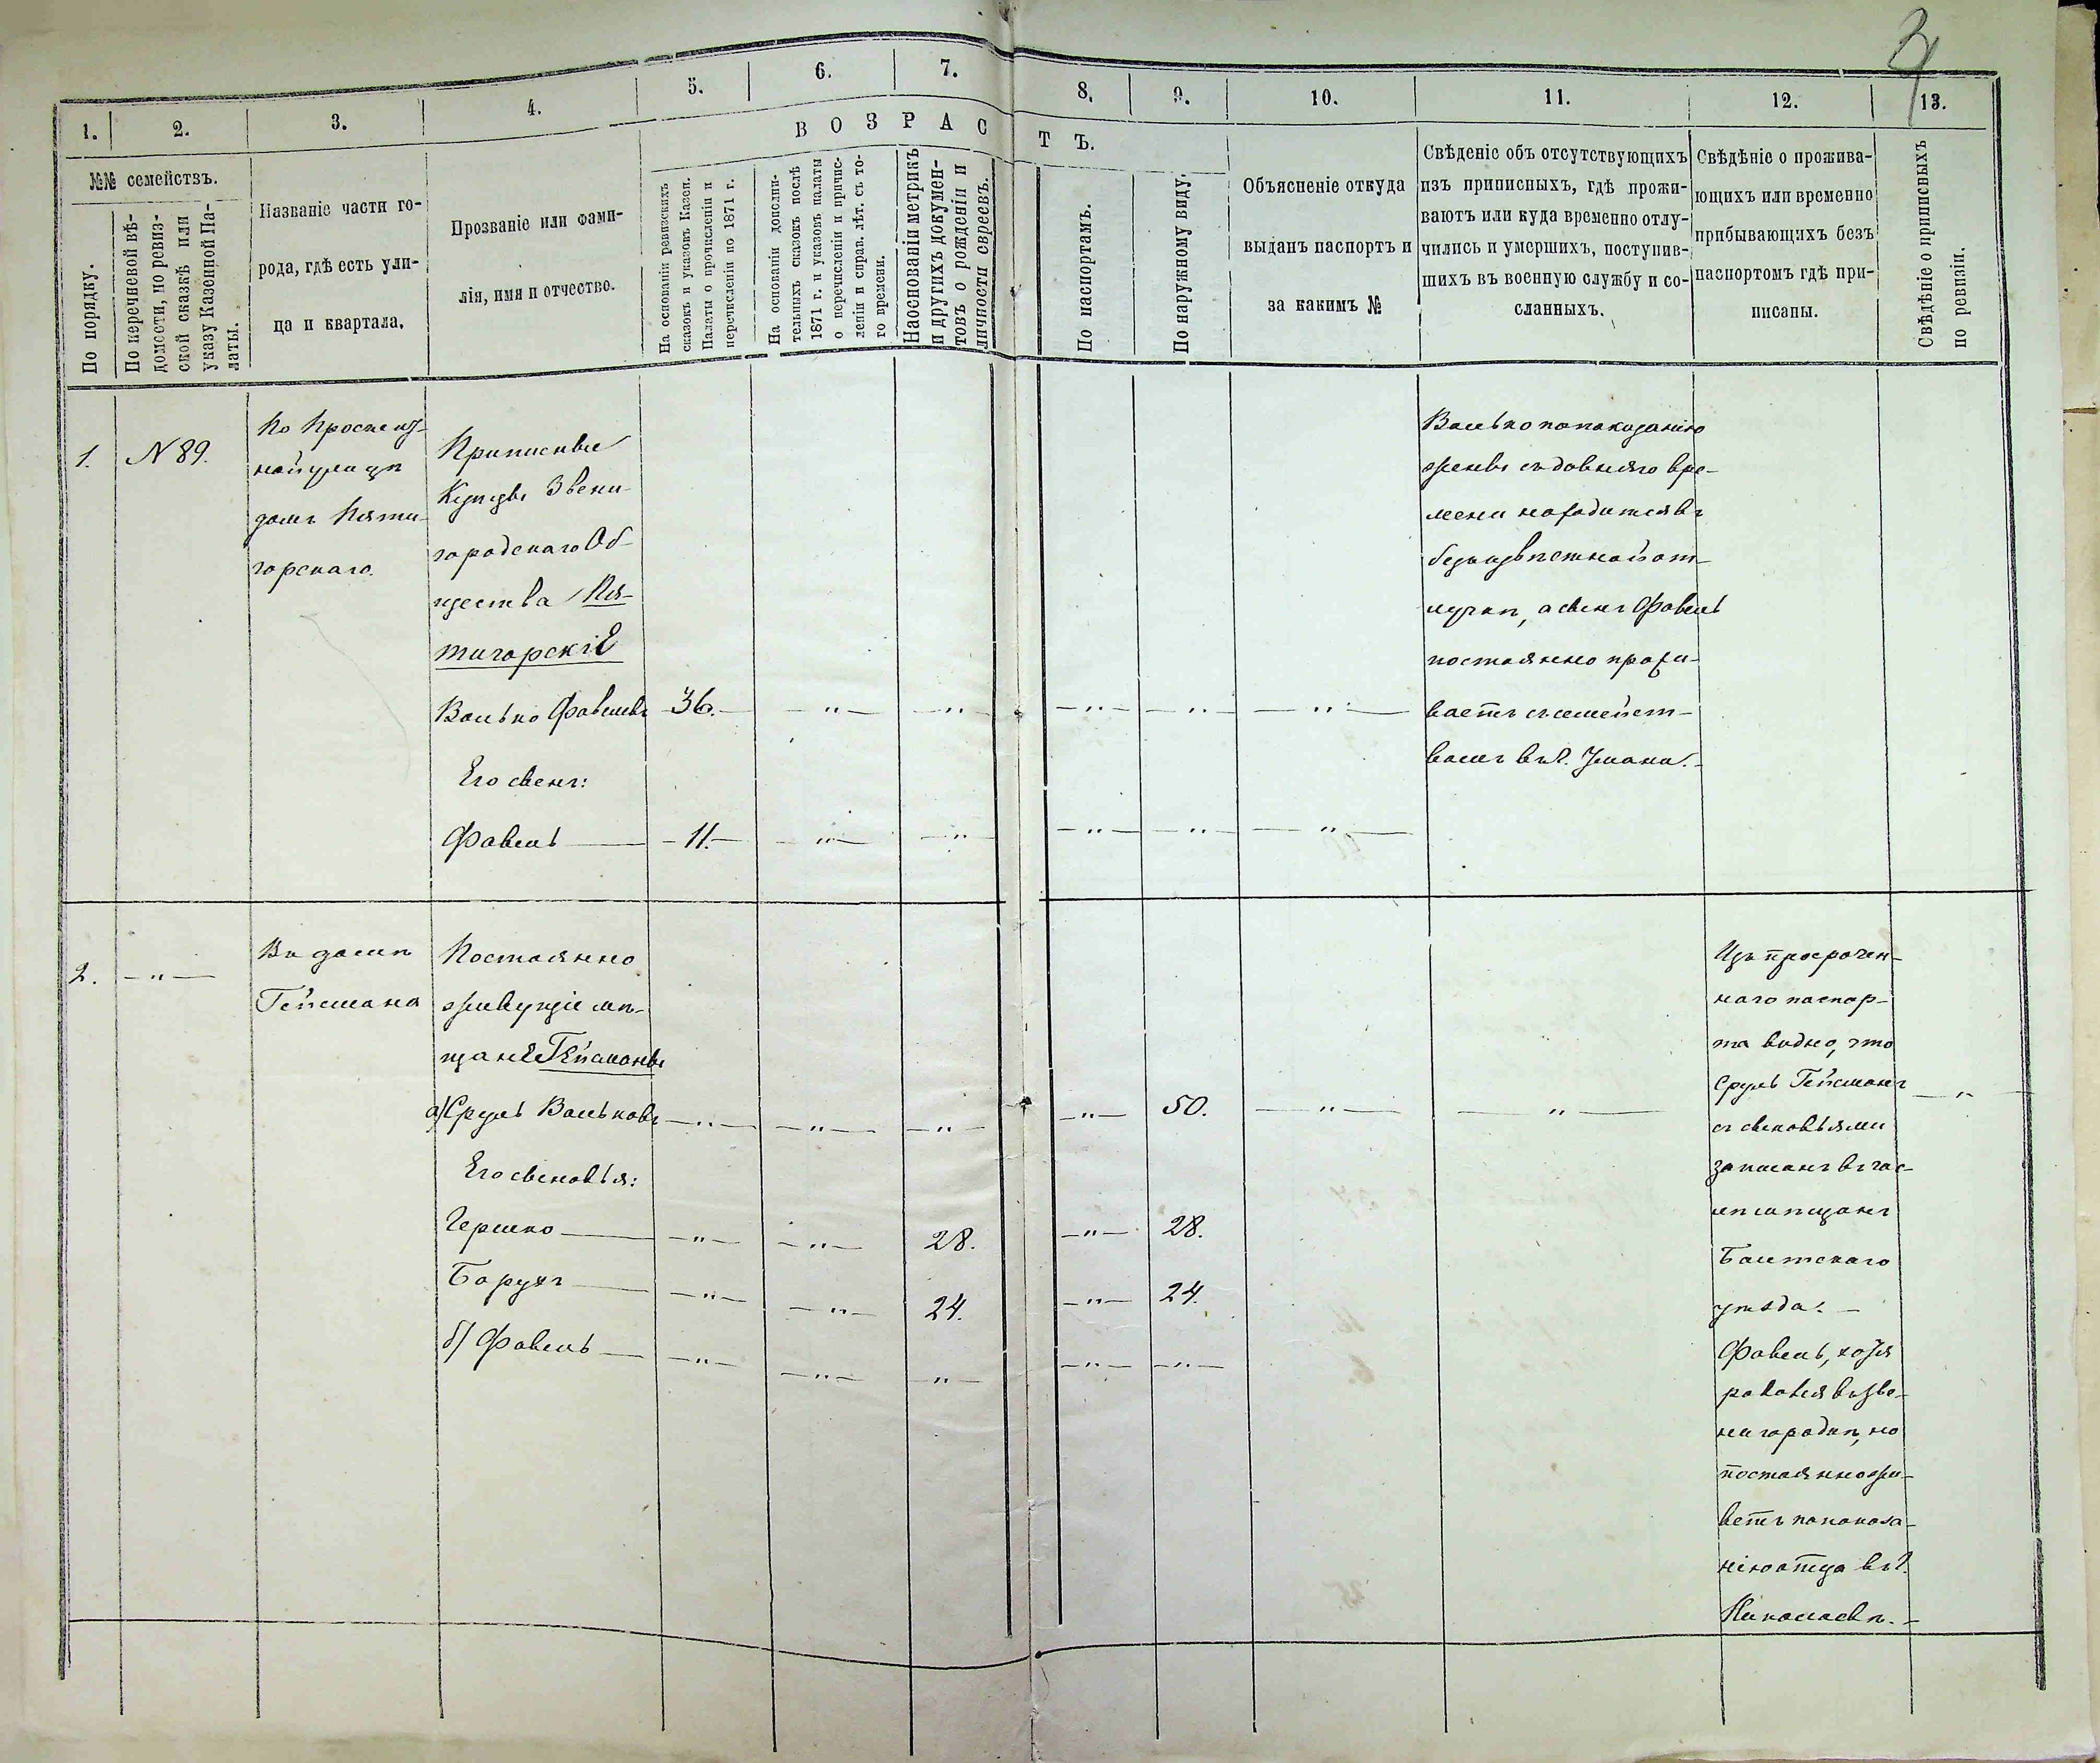 3
4
1.
2.
3.
4.
5.
6.
7.
8.
9.
10.
11.
12.
13.
ВОЗРАСТЪ.
№№ семействъ.
По порядку.
По перечневой вѣ-
домости, по ревиз-
ской сказкѣ или
указу Казенной Па-
латы.
Названіе части го-
рода, гдѣ есть ули-
ца и квартала.
Прозваніе или фами-
лія, имя и отчество.
На основаніи ревизскихъ
сказокъ и указовъ Казен.
Палаты о причисленіи и
перечисленіи по 1871 г.
На основаніи дополни-
тельныхъ сказокъ послѣ
1871 г. и указовъ палаты
о перечисленіи и причис-
леніи и справ. лѣт. съ то-
го времени.
На основаніи метрикъ
и другихъ докумен-
товъ о рожденіи и
личности евреевъ.
По паспортамъ.
По наружному виду.
Объясненіе откуда
выданъ паспортъ и
за какимъ №
Свѣденіе объ отсутствующихъ
изъ приписныхъ, гдѣ прожи-
ваютъ или куда временно отлу-
чились и умершихъ, поступив-
шихъ въ военную службу и со-
сланныхъ.
Свѣдѣніе о прожива-
ющихъ или временно
прибывающихъ безъ
паспортомъ гдѣ при-
писаны.
Свѣдѣніе о приписныхъ
по ревизіи.
1.
N 89.
По Проспект-
ной улицѣ
домъ Пяти-
горскаго.
Приписные
Купцы Звени-
городскаго Об-
щества Пя-
тигорскіе
Волько Фавелевъ
36. — " — — " — " — " — " —
Его сынъ:
Фавель — 11. — " — " — " — " — " —
Волько по показанію
жены съ давняго вре-
мени находится въ
безъизвѣстной от-
лучкѣ, а сынъ Фавель
постоянно прожи-
ваетъ съ семейст-
вомъ въ г. Умани.-
2.
— " —
Въ домѣ
Гейсмана
Постоянно
живущіе мѣ-
щане Гейсманы
а) Сруль Вольковъ — " — " — " — " — 50. — " — " — " —
Его сыновья:
Гершко — " — " — 28. — " — 28.
Борухъ — " — " — 24. — " — 24.
б) Фавель — " — " — " — " — " —
Изъ просрочен-
наго паспор-
та видно, что
Сруль Гейсманъ
съ сыновьями
записанъ въ чис-
лѣ мѣщанъ
Балтскаго
уѣзда. —
Фавель, хотя
родился въ Зве-
нигородкѣ, но
постоянно жи-
ветъ по показа-
нію отца въ г.
Николаевѣ. -